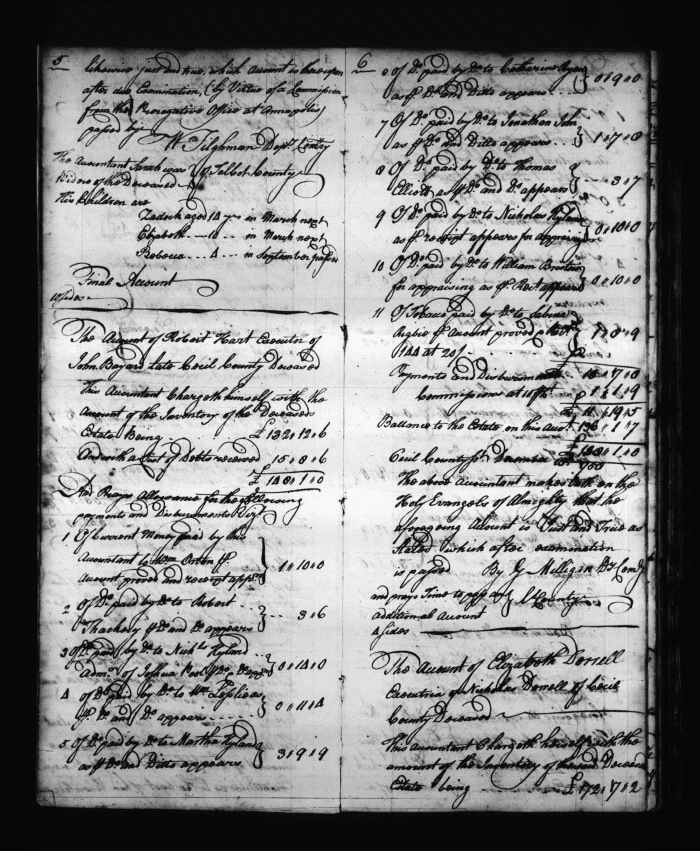 5
likewise just and true, which Account is hereupon
after due Examination, (by Virtue of a Commission
from the Prerogative Office at Annapolis)
passed by
W Tilghman Depty Comry
of Talbot County
The Accountant Sarah was
Widow of the Deceased
His Children are
Zadock aged 14 yrs in March next
Elizabeth 10 in March next
Rebecca 4 in September passed
Final Account
10 sides
The Account of Robert Hart Executor of
John Bayard Late Cecil County Deceased
This Accountant Chargeth himself with the
Amount of the Inventory of the Deceaseds
Estate Being £132.12.6
And with a List of Debts received 15.8.6
£ 148.1.0
And Prays Allowance for the following
payments and Disbursements Vizt
1 Of Current Money paid by this
Accountant to Wm
Account proved and receipt apprs 1.10.0
2 Of Do paid by Do to Robert
Thackery pr Do and Do appears 3.6
3 Of Do paid by Do to Nichs Hyland
Admr of Joshua pr Do & Do appr 0.14.0
4 of Do paid by Do to Wm
pr Do and Do appears 0.11.4
5 Of Do paid by Do to Martha Hyland
as pr Do and Ditto appears 3.9.9
6
6 Of Do paid by Do to Catharine
as pr Do and Ditto appears 0.9.0
7 Of Do paid by Do to Jonathan John
as pr Do and Ditto appears 1.7.8
8 Of Do paid by Do to Thomas
Elliott as pr Do and Do appears 3.7
9 Of Do paid by Do to Nicholas Hyland
as pr receipt appears for Appraising 0.10.0
10 Of Do paid by Do to William
for appraising as pr Rect appears 0.10.0
11 Of Tobacco paid by Do to
pr Account proved & Rect
144 at 20/ 1.8.9
Payments and Disbursements
Commissions at 1.1.9
£ 11.19.5
Ballance to the Estate on this Acct 136.1.7
£ 148.1.0
Cecil County Sc December
The above Accountant makes Oath on the
Holy Evangels of Almighty that the
aforegoing Account is Just and True as
stated which after examination
is passed By G Milligan Dy Comry
and prays Time to pass an
additional Account
C County
4 sides
The Account of Elizabeth Dorrell
Executrix of Nicholas Dorrell of Cecil
County Deceased
This Accountant Chargeth herself with the
amount of the Inventory of the said Deceased
Estate being £172.7.2